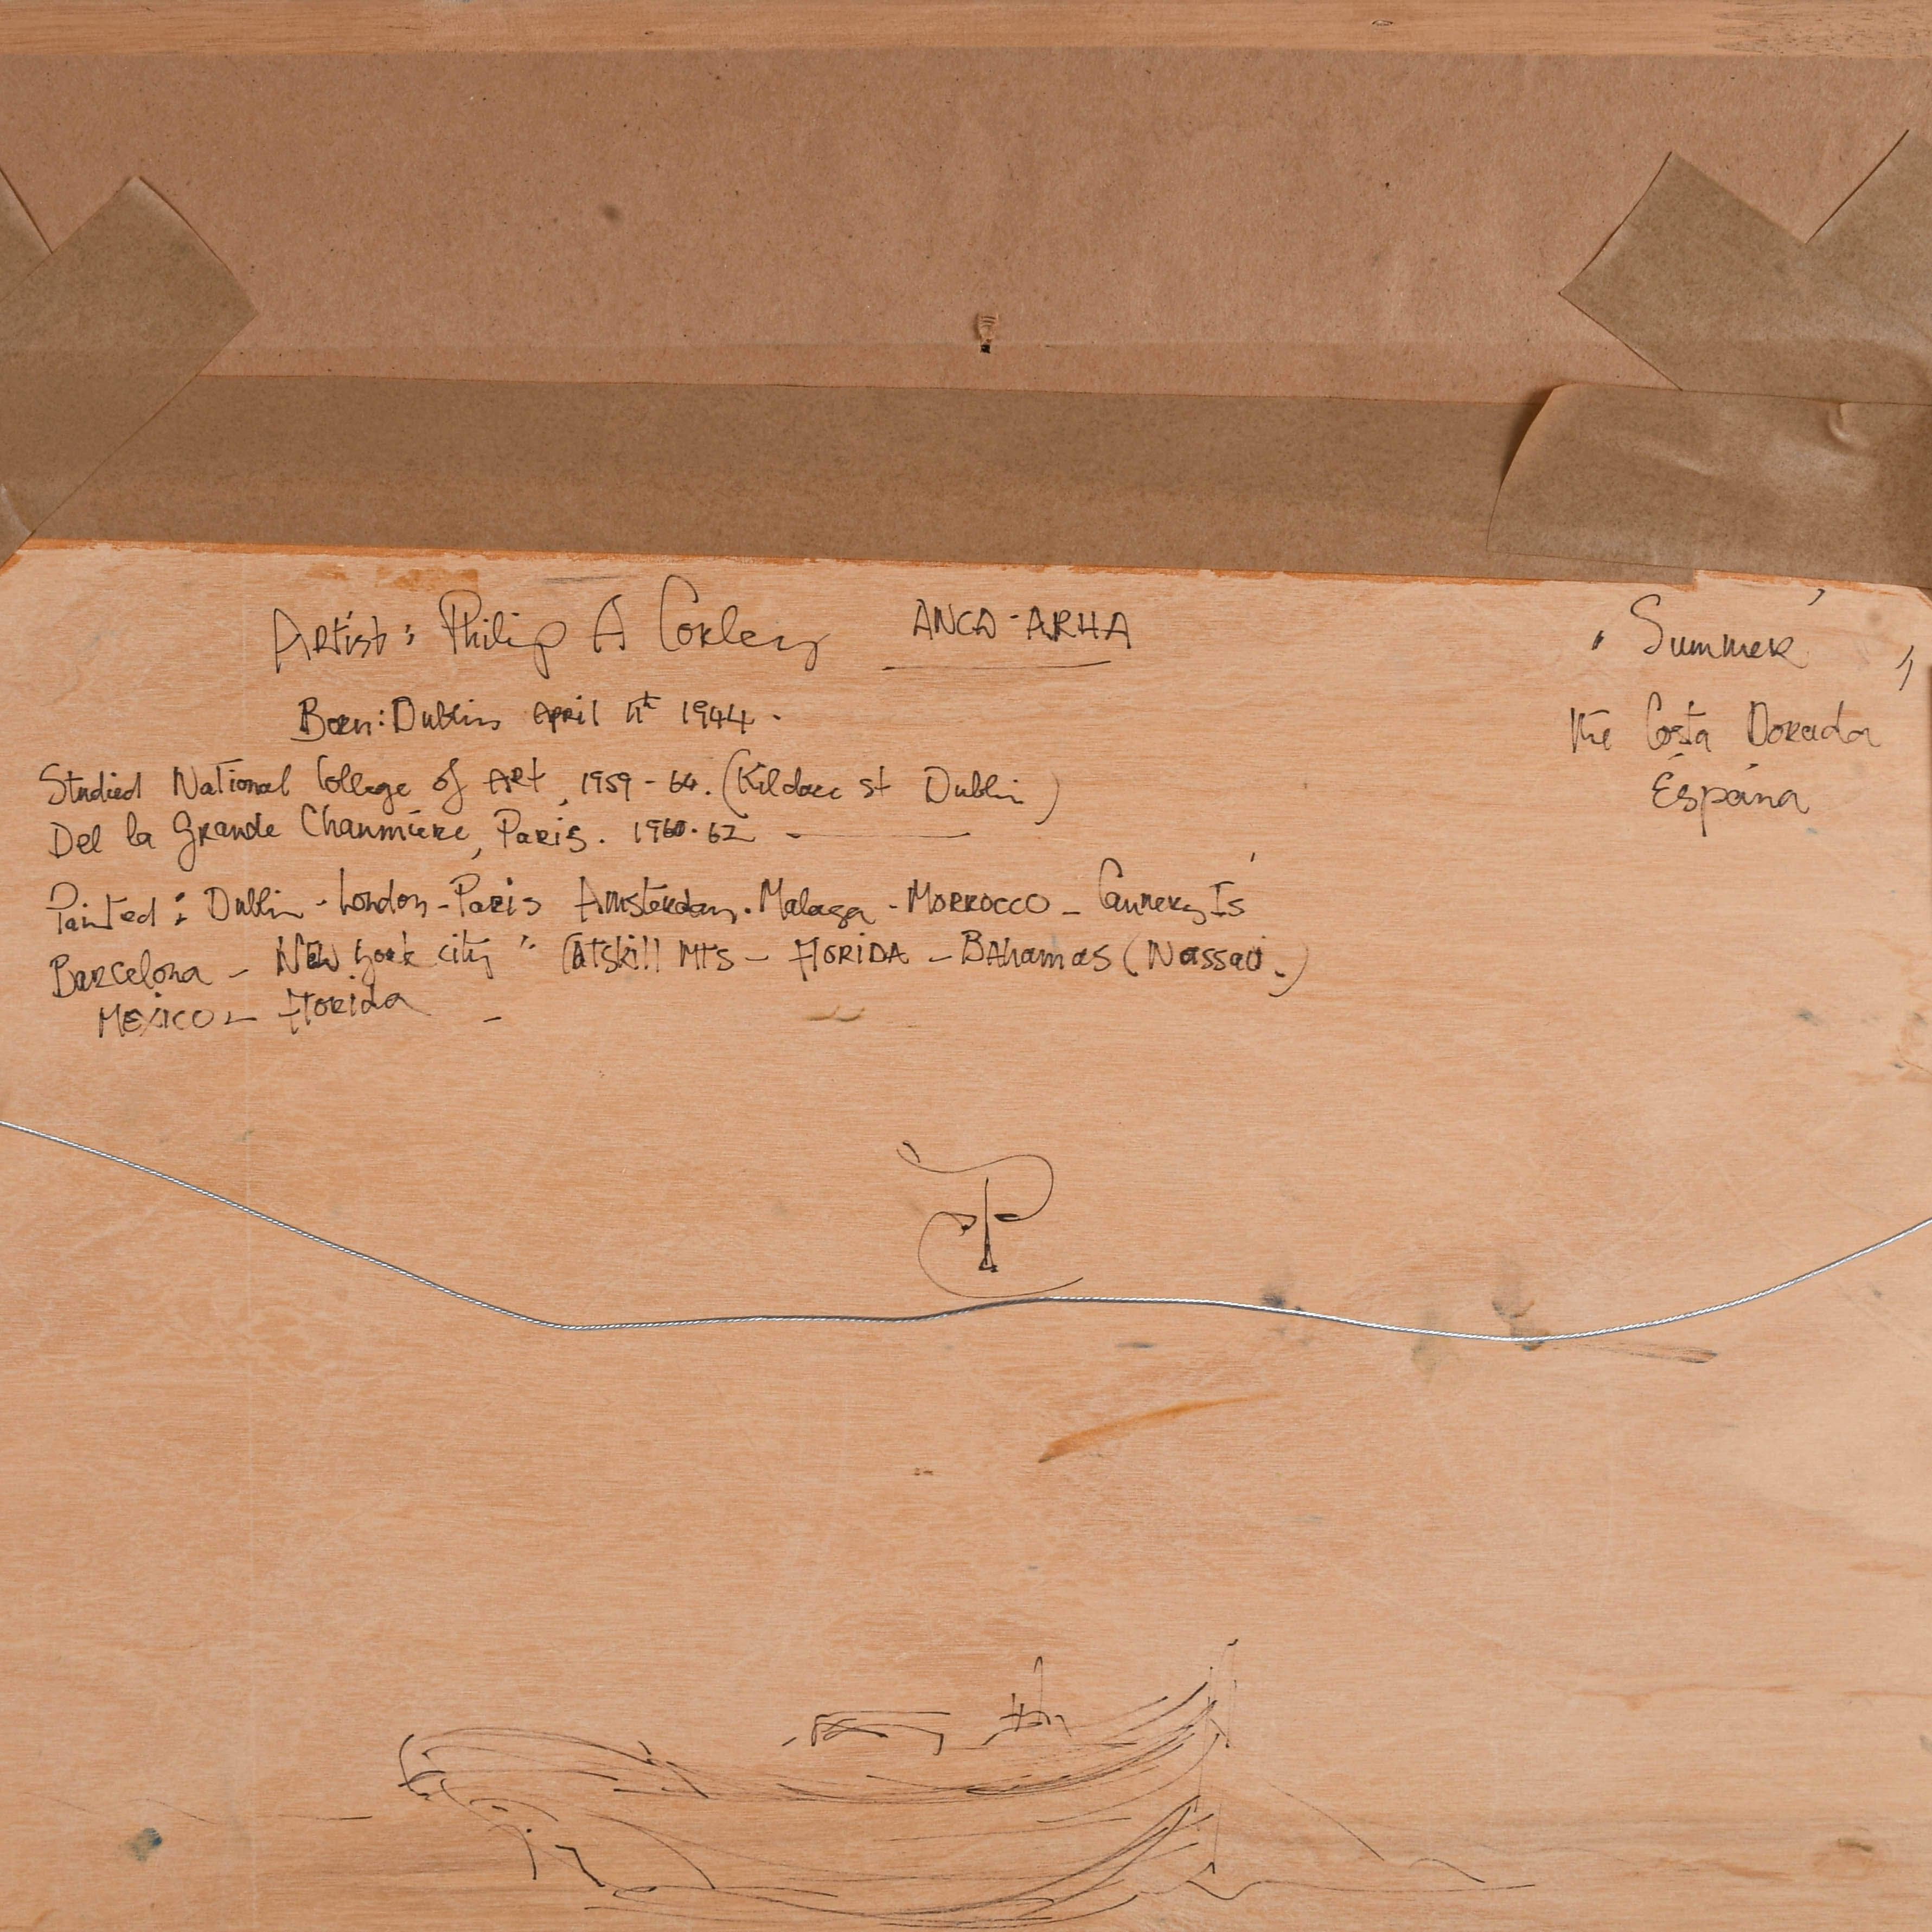 Artist: Philip A Corley ANCA-ARHA
Born: Dublin April 11th 1944.
Studied National College of Art, 1959-64. (Kildare St Dublin)
Del la Grande Chaumière, Paris. 1960-62
Painted: Dublin - London - Paris Amsterdam. Malaga - MORROCCO - Cannery Is
Barcelona - New York city " Catskill MTS - FLORIDA - BAHamas (Nassau.)
MEXICO - Florida -
'Summer'
The Costa Dorada
España
P